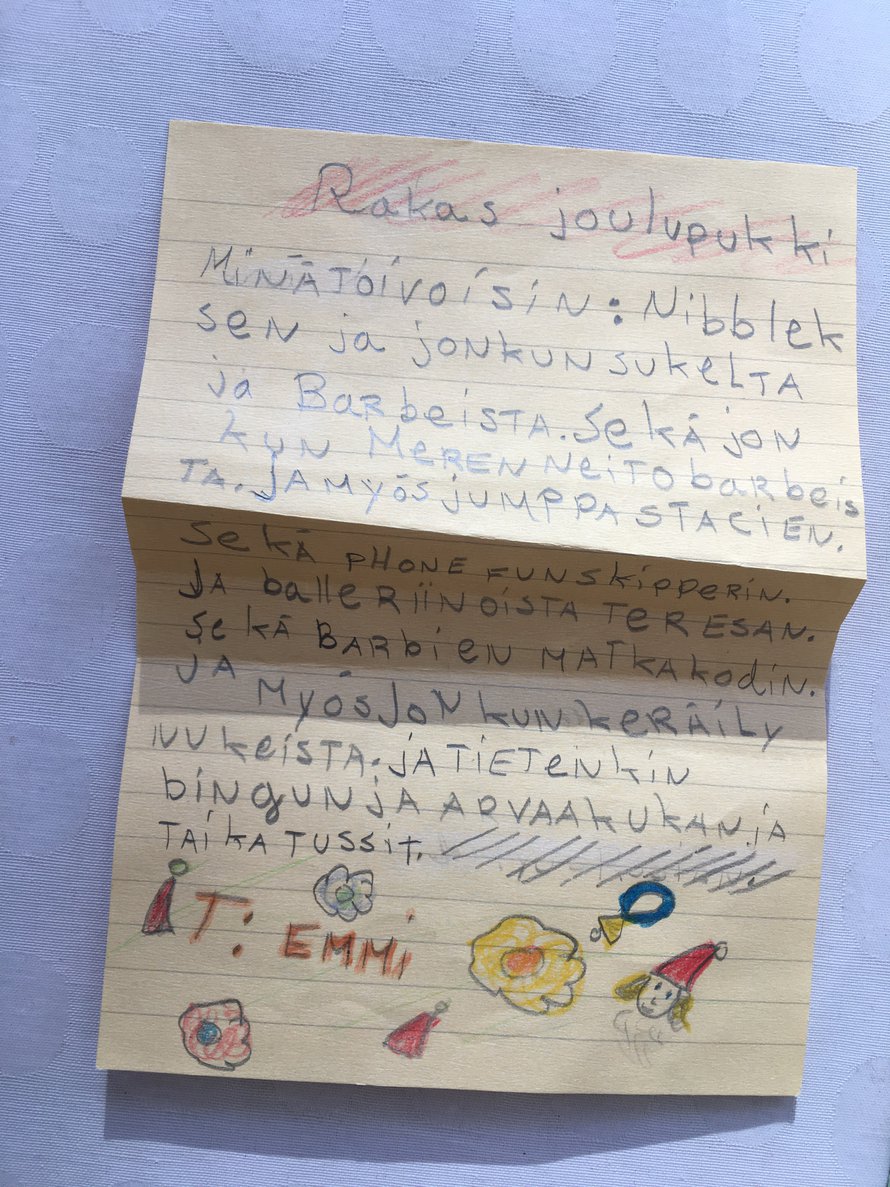 Rakas joulupukki
MiNÄ TOiVOiSiN: Nibblek
seN ja jONKUN sukeLTA
ja BarbeisTA. Sekä jon
kun MeRENNeiTObarbeis
TA. JA MYÖS JUMPPASTACIEN.
SeKÄ PHONE FUNSKippeRiN.
JA balleRiiNOiSTA TERESAN.
SeKÄ BARbiEN MATKAKODiN.
JA MYÖS JONKUN keRÄiLY
NUKeiSTA: JA TIETeNKiN
biNgUN JA ARVAAKUKAN. JA
TAiKATUSSiT.
T: EMMi